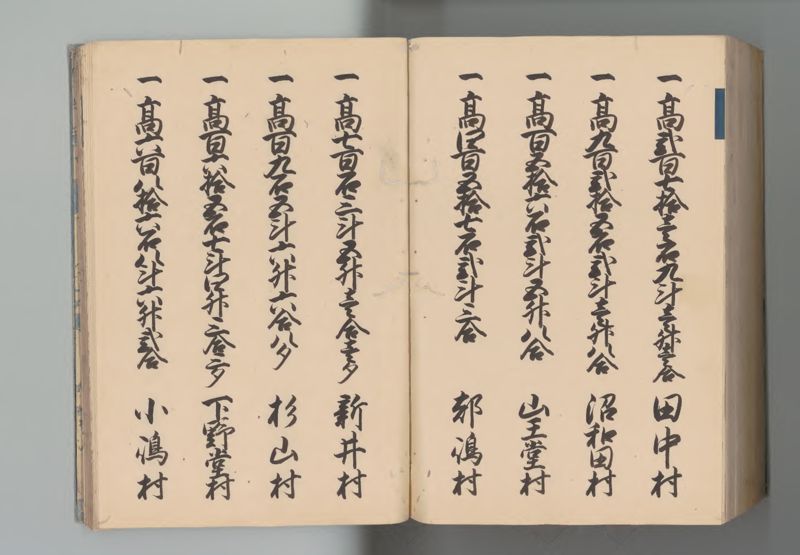 一 高弐百七拾壱石九斗壱升壱合 田中村
一 高九百弐拾五石弐斗壱升八合 沼和田村
一 高百五拾六石弐斗五升八合 山王堂村
一 高四百五拾七石弐斗三合 鵜村
一 高七百石三斗五升壱合壱夕 新井村
一 高百九石五斗六升六合八夕 杉山村
一 高百六拾五石七斗四升三合二夕 下野堂村
一 高六百八拾六石八斗六升弐合 小嶋村